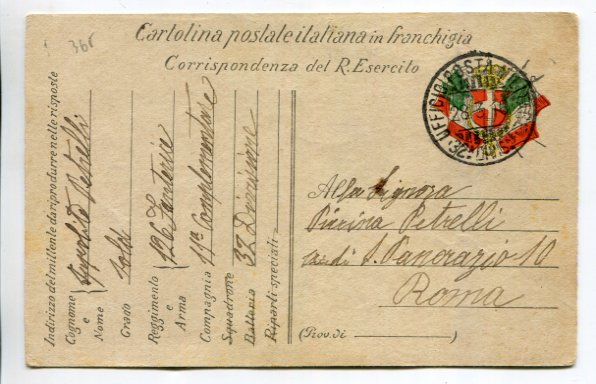 366
Cartolina postale italiana in franchigia
Corrispondenza del R. Esercito
UFFICIO POSTA
Alla Signora
Pierina Petrelli
S. Pancrazio 10
Roma
(Prov. di
Indirizzo del mittente da riprodurre nelle risposte
Cognome e Nome Petrelli
Grado Sold.
Reggimento e Arma 126 Fanteria
Compagnia 11ª Complementare
Squadrone
Batteria 32 Divisione
Riparti speciali